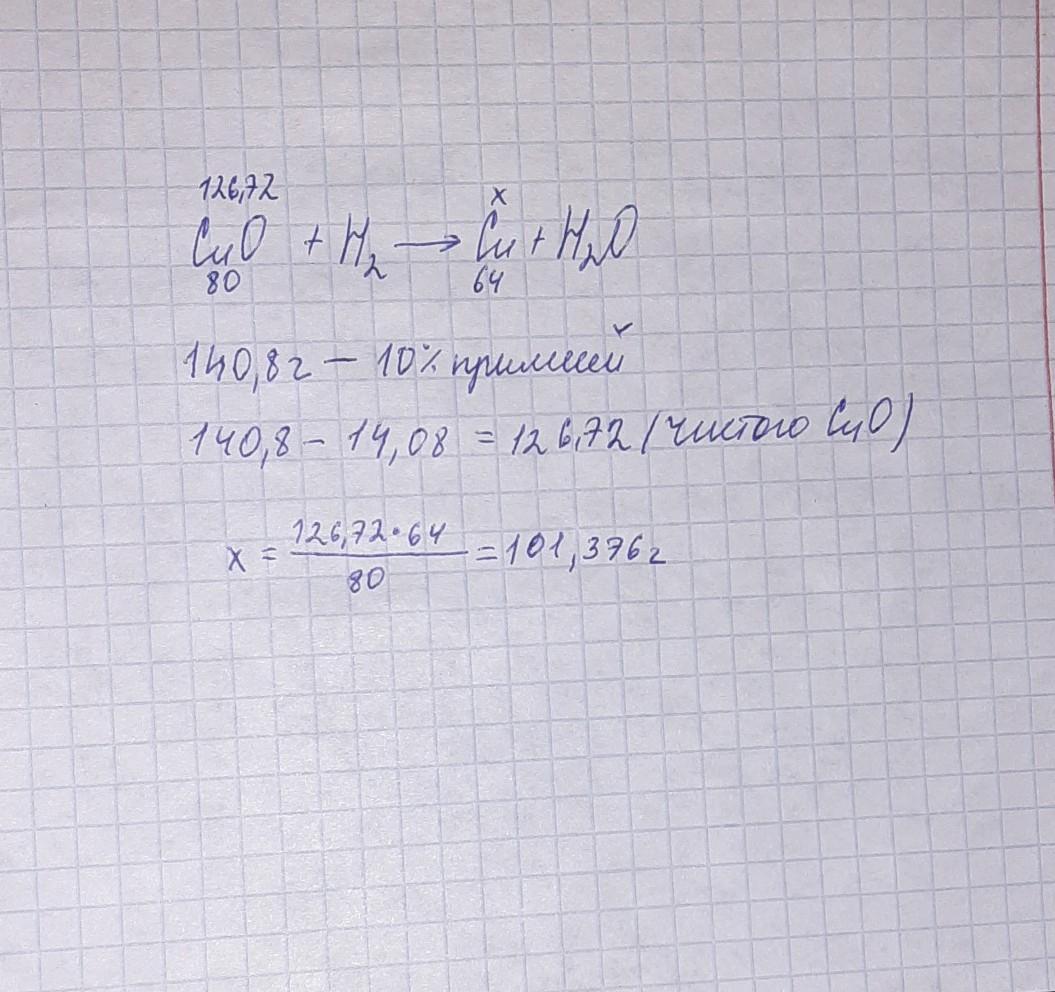 126,72 x
CuO + H₂ → Cu + H₂O
80 64
140,8г — 10% примесей
140,8 - 14,08 = 126,72 (чистого CuO)
x = 126,72·64 / 80 = 101,376г